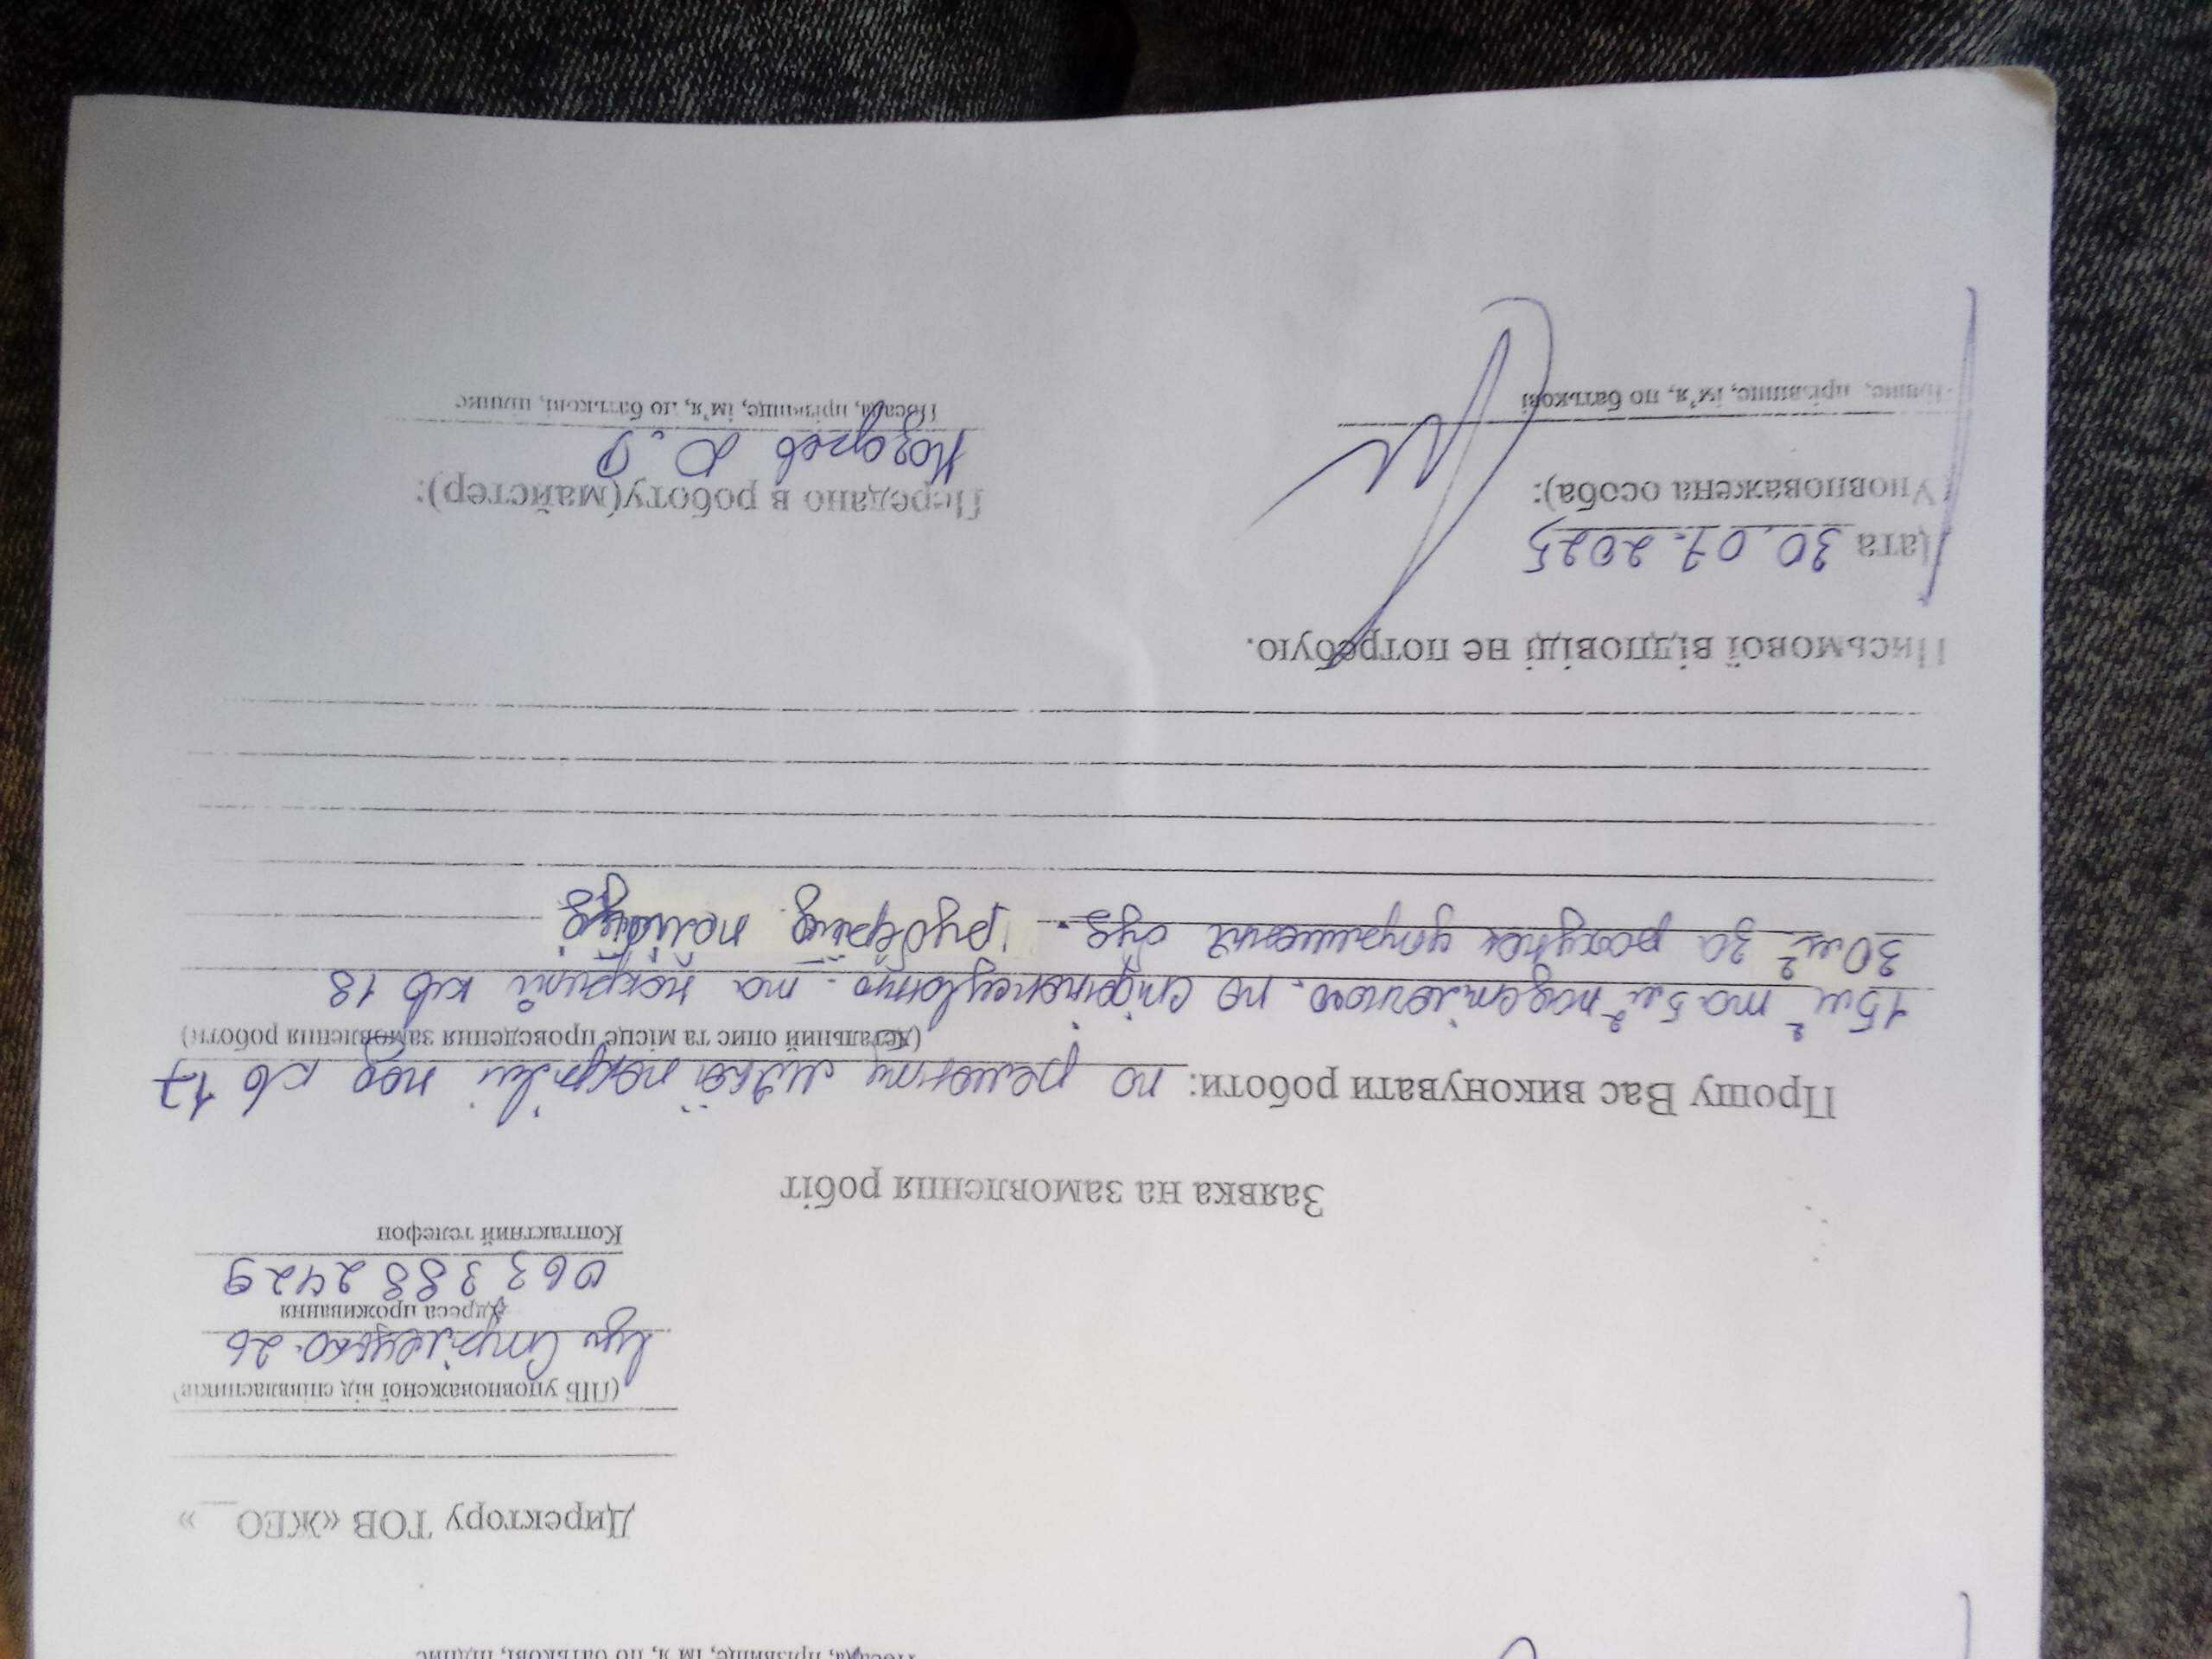 Директору ТОВ «ЖЕО__»
(ПІБ уповноваженої від співвласників)
вул Стрілецько. 26
Адреса проживання
063 388 2429
Контактний телефон
Заявка на замовлення робіт
Прошу Вас виконувати роботи: по ремонту мʼякої покрівлі над кв 17
(Детальний опис та місце проведення замовлення роботи)
15 м² та 5 м² по та покрівлі кв 18
30 м² за рахунок буд.
Письмової відповіді не потребую.
Дата 30.07.2025
Уповноважена особа):
прізвище, ім’я, по батькові
Передано в роботу(майстер):
Посада, прізвище, ім’я, по батькові, підпис
Посада, прізвище, ім’я, по батькові, підпис